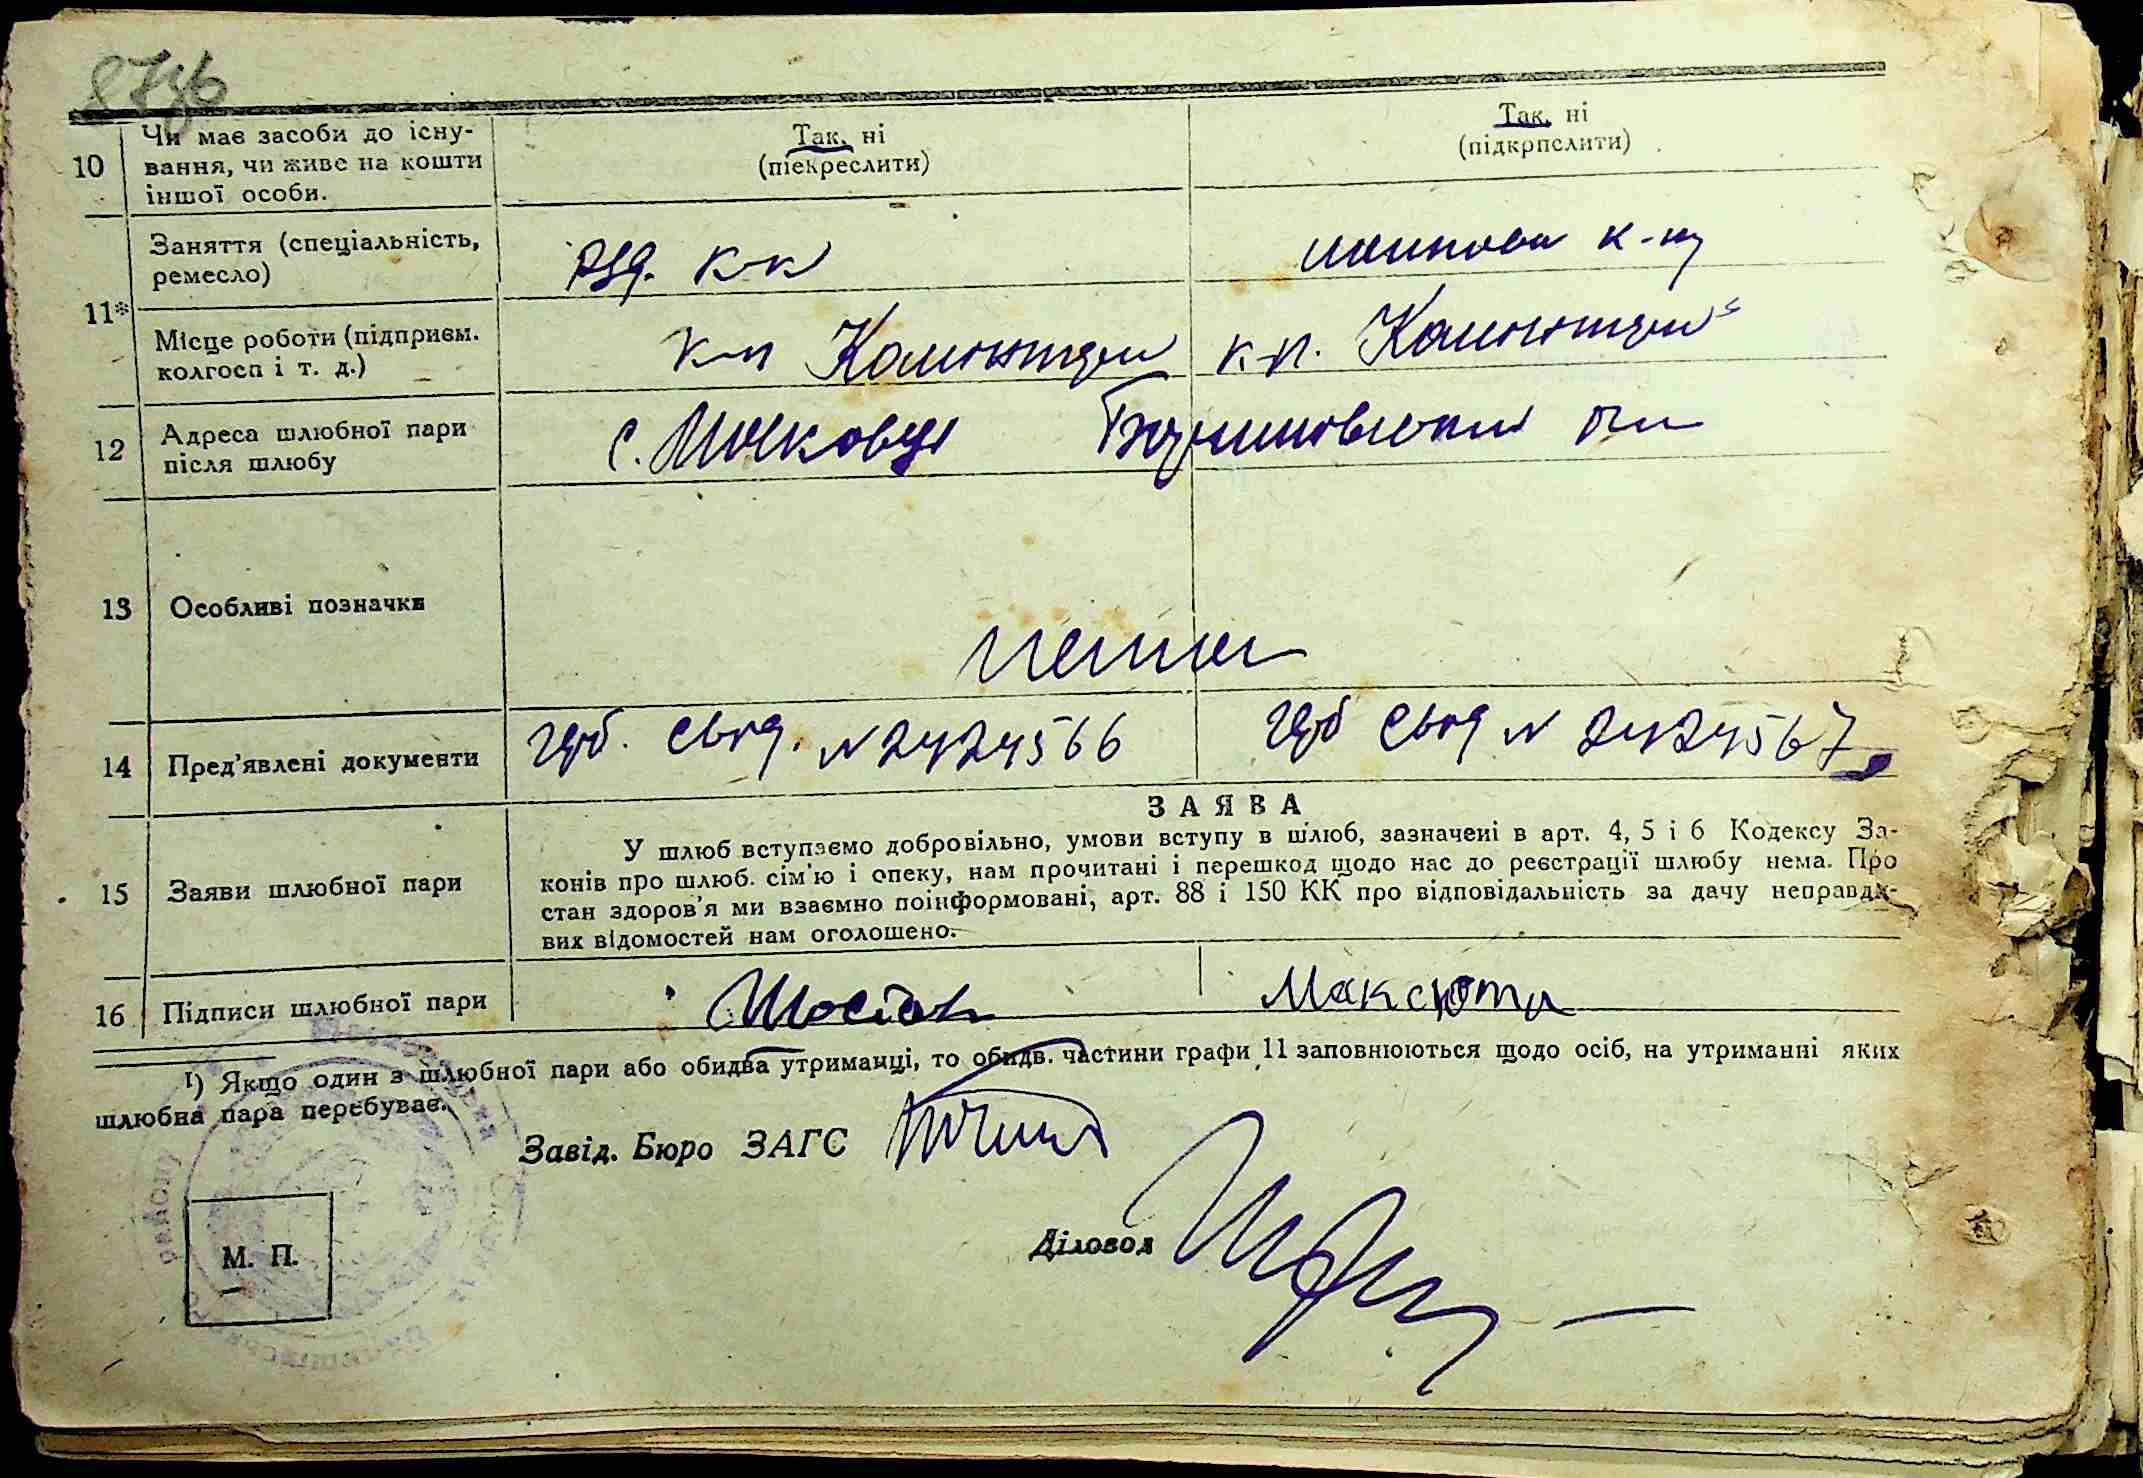 10 Чи має засоби до існу-
вання, чи живе на кошти
іншої особи.
Так, ні
(піекреслити)
Так, ні
(підкрпслити)
11*
Заняття (спеціальність,
ремесло)
к-к
к-ці
Місце роботи (підприєм.
колгосп і т. д.)
к-п Комінтерн
к-п. Комінтерн
12 Адреса шлюбної пари
після шлюбу
с.
13 Особливі позначки
немає
14 Пред'явлені документи
свід. N 2424566
свід N 2424567
15 Заяви шлюбної пари
ЗАЯВА
У шлюб вступаємо добровільно, умови вступу в шлюб, зазначені в арт. 4, 5 і 6 Кодексу За-
конів про шлюб. сім'ю і опеку, нам прочитані і перешкод щодо нас до реєстрації шлюбу нема. Про
стан здоров'я ми взаємно поінформовані, арт. 88 і 150 КК про відповідальність за дачу неправди-
вих відомостей нам оголошено.
16 Підписи шлюбної пари
Максюта
¹) Якщо один з шлюбної пари або обидва утриманці, то обидв. частини графи 11 заповнюються щодо осіб, на утриманні яких
шлюбна пара перебуває.
Завід. Бюро ЗАГС
Діловод
М. П.